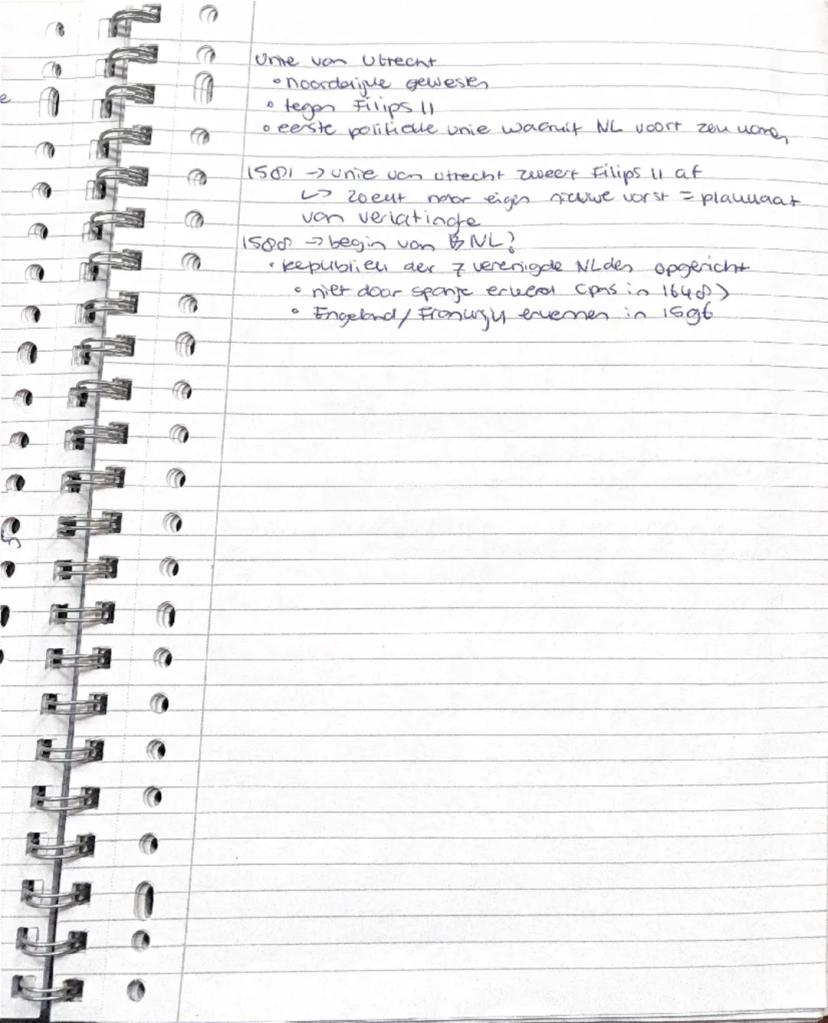 e
Unie van Utrecht
• noordelijke gewesten
• tegen Filips II
• eerste politieke unie waaruit NL voort zou komen
1581 → Unie van Utrecht zweert Filips II af
↳ zoekt naar eigen nieuwe vorst = plakkaat
van verlatinge
1588 → begin van NL?
• Republiek der 7 verenigde NLden opgericht
• niet door Spanje erkend (pas in 1648)
• Engeland/Frankrijk erkennen in 1596